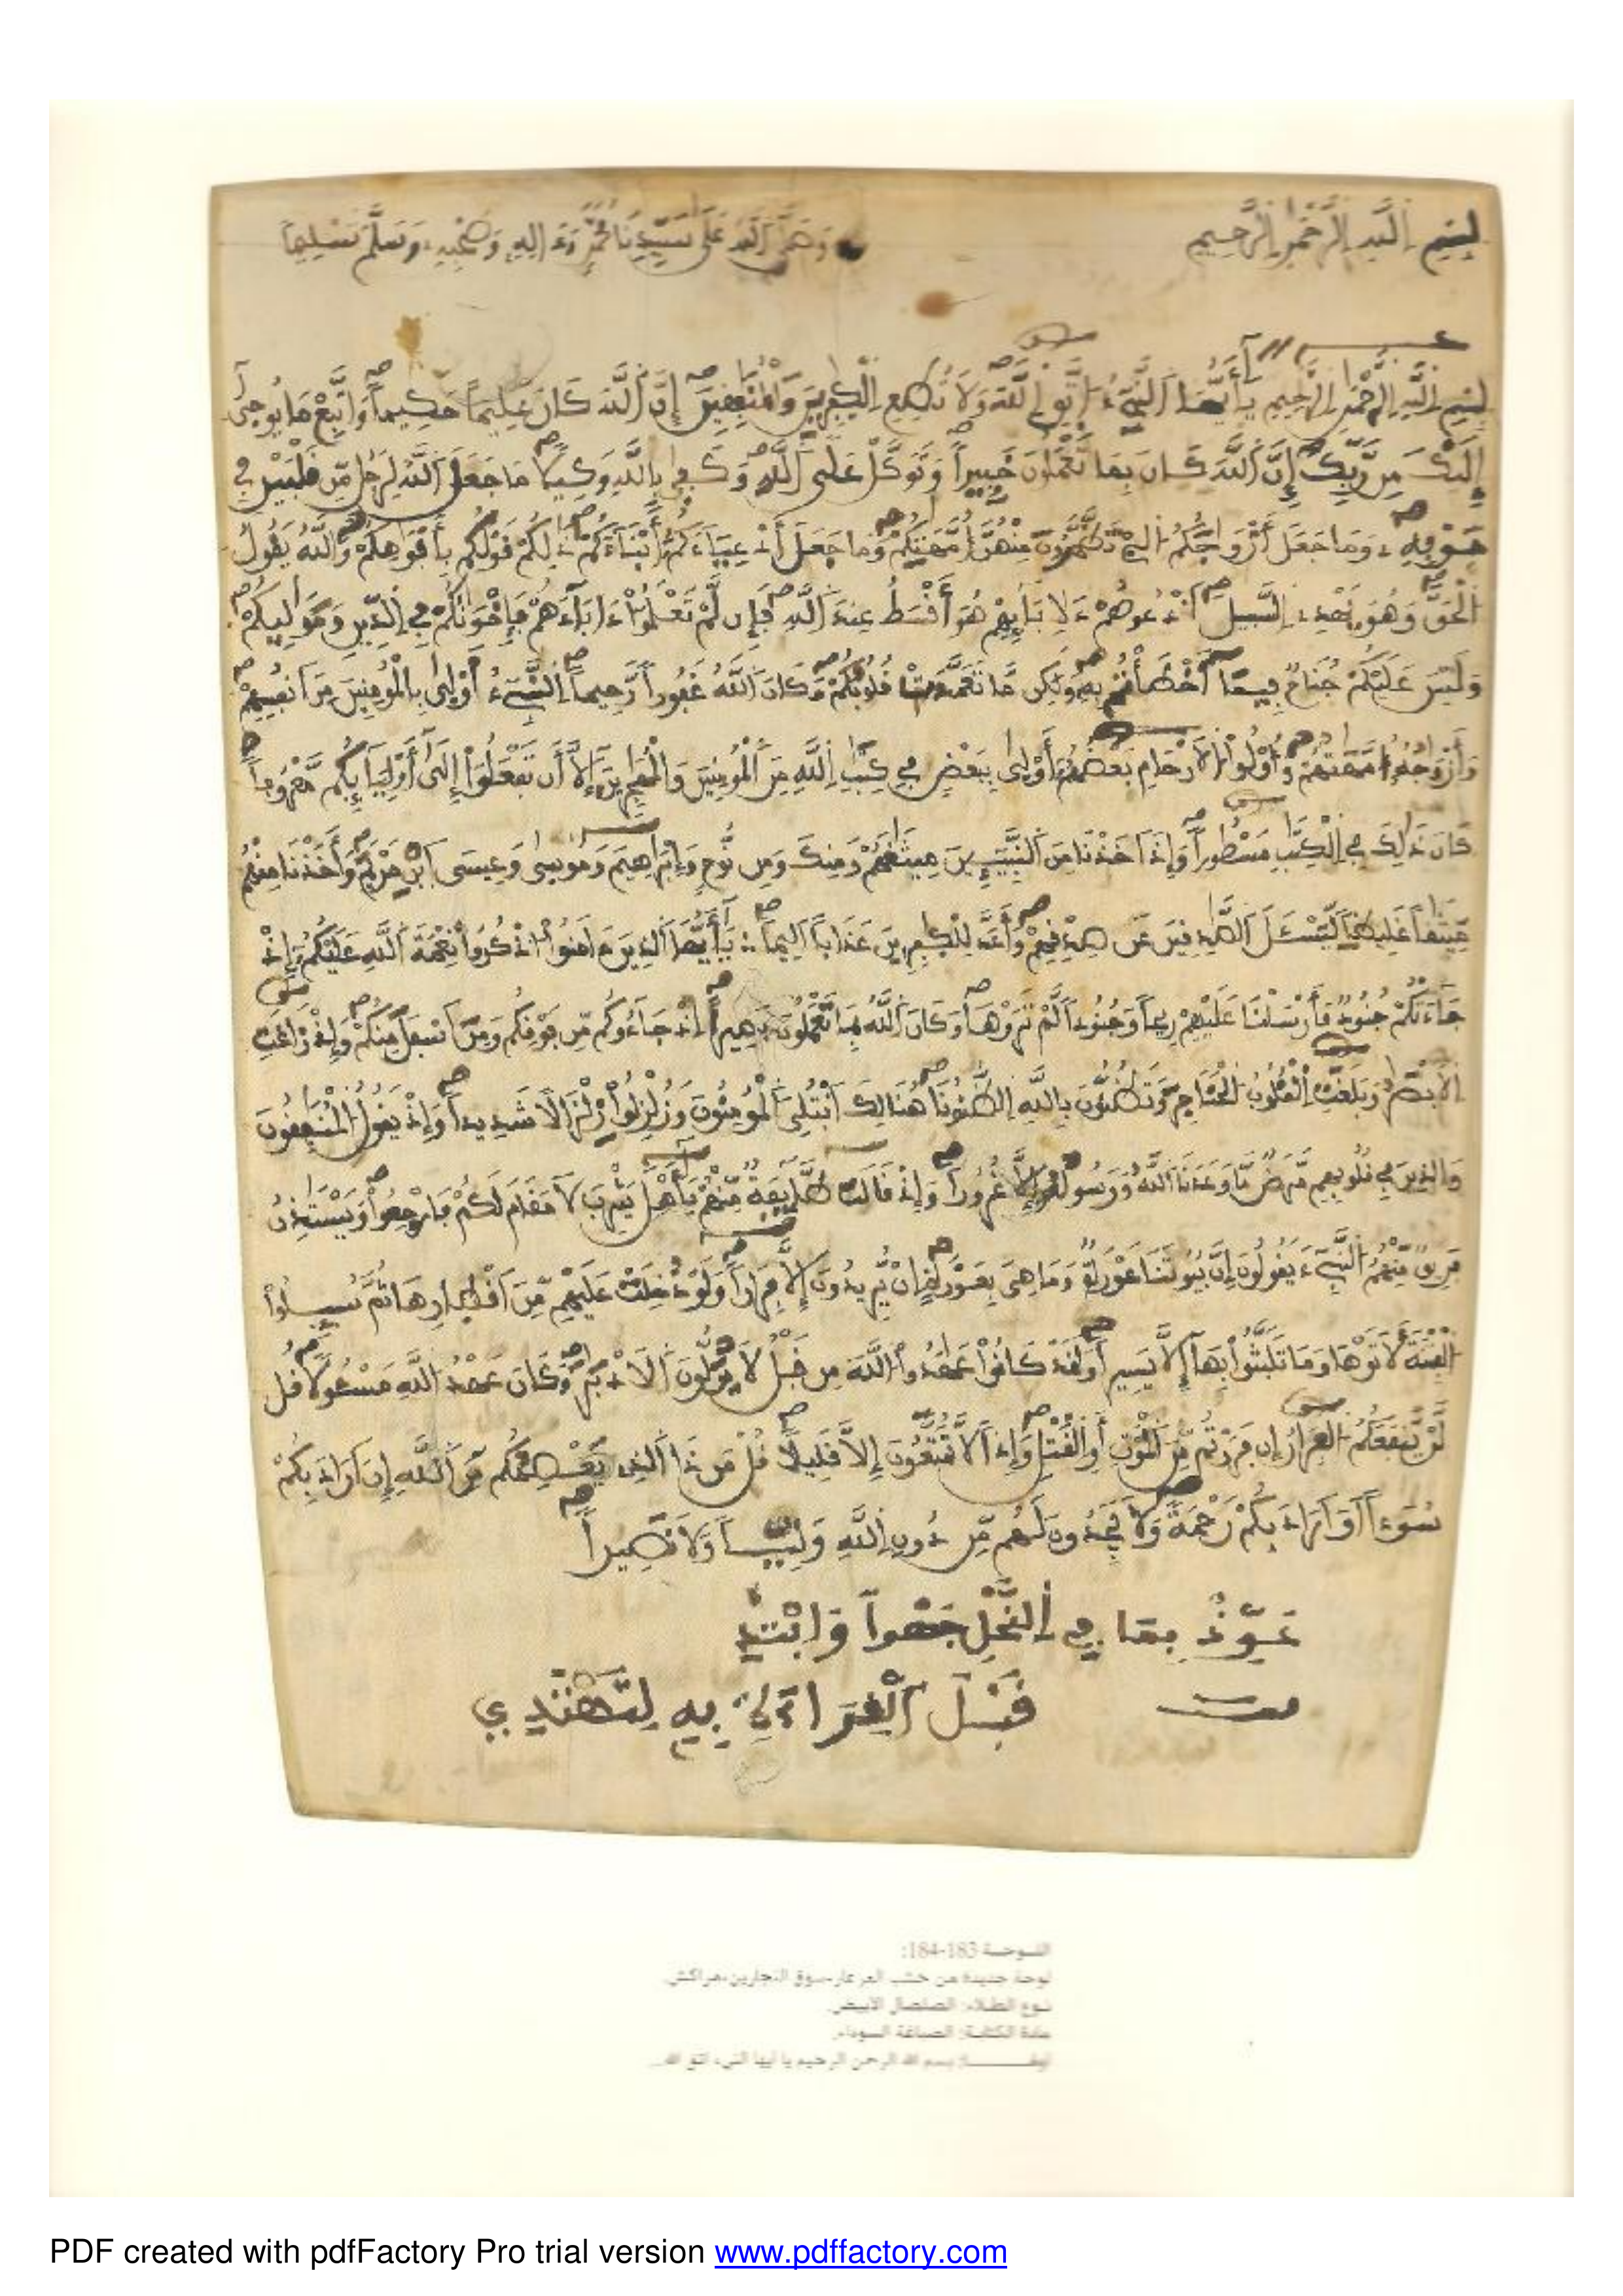 بسم الله الرحمن الرحيم وصلى الله على سيدنا محمد وءاله وصحبه وسلم تسليما
بسم الله الرحمن الرحيم يأيها النبيء اتق الله ولا تطع الكفرين والمنفقين إن الله كان عليما حكيما واتبع ما يوحى
إليك من ربك إن الله كان بما تعملون خبيرا وتوكل على الله وكفى بالله وكيلا ما جعل الله لرجل من قلبين في
جوفه وما جعل أزواجكم الى تظهرون منهن أمهتكم وما جعل أدعياءكم أبناءكم ذلكم قولكم بأفواهكم والله يقول
الحق وهو يهدى السبيل ادعوهم ءلابايهم هو أقسط عند الله فإن لم تعلموا ءاباءهم فإخونكم في الدين ومواليكم
وليس عليكم جناح فيما أخطأتم به ولكن ما تعمدت قلوبكم وكان الله غفورا رحيما النبيء أولى بالمومنين من انفسهم
وأزوجه أمهتهم وأولوا الارحام بعضهم أولى ببعض في كتب الله من المومنين والمهجرين إلا أن تفعلوا إلى أوليايكم معروفا
كان ذلك في الكتب مسطورا وإذ اخذنا من النبيين ميثقهم ومنك ومن نوح وإبرهيم وموسى وعيسى ابن مريم وأخذنا منهم
ميثقا غليظا ليسئل الصدقين عن صدقهم وأعد للكفرين عذابا اليما يأيها الذين ءامنوا اذكروا نعمة الله عليكم إذ
جاءتكم جنود فأرسلنا عليهم ريحا وجنودا لم تروها وكان الله بما تعملون بصيرا إذ جاءوكم من فوقكم ومن اسفل منكم وإذ زاغت
الابصر وبلغت القلوب الحناجر وتظنون بالله الظنونا هنالك ابتلى المومنون وزلزلوا زلزالا شديدا وإذ يقول المنفقون
والذين في قلوبهم مرض ما وعدنا الله ورسوله إلا غرورا وإذ قالت طايفة منهم يأهل يثرب لا مقام لكم فارجعوا ويستذن
فريق منهم النبيء يقولون إن بيوتنا عورة وما هى بعورة إن يريدون إلا فرارا ولو دخلت عليهم من اقطارها ثم سيلوا
الفتنة لأتوها وما تلبثوا بها إلا يسيرا ولقد كانوا عهدوا الله من قبل لا يولون الادبر وكان عهد الله مسئولا قل
لن ينفعكم الفرار إن فررتم من الموت أو القتل وإذا لا تمتعون إلا قليلا قل من ذا الذى يعصمكم من الله إن اراد بكم
سوءا أو اراد بكم رحمة ولا يجدون لهم من دون الله وليا ولا نصيرا
عوذ بما في النحل جهرا وابتدي
قبل القراءة به لتهتدي
اللوحة 183-184:
لوحة جديدة من خشب العرعار-سوق النجارين-مراكش.
نوع الطلاء: الصلصال الأبيض.
مادة الكتابة: الصباغة السوداء.
أولها: بسم الله الرحمن الرحيم يا أيها النبيء اتق الله...
PDF created with pdfFactory Pro trial version www.pdffactory.com